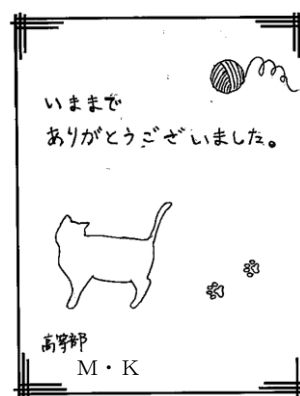 いままで
ありがとうございました。
高等部
M・K